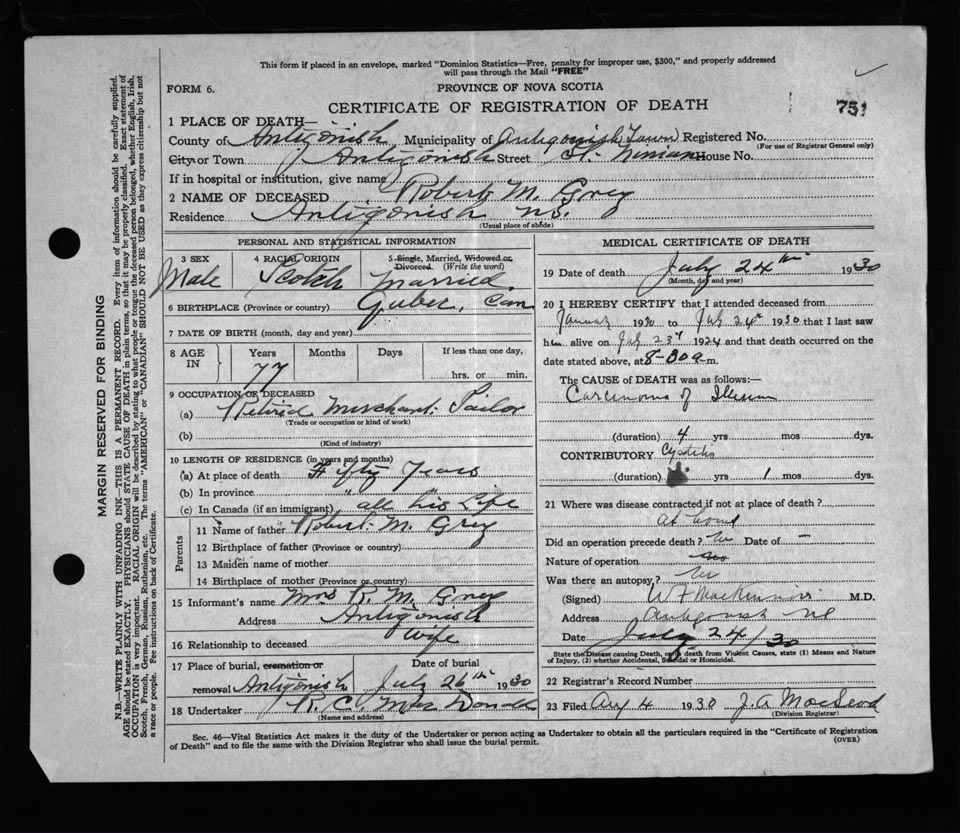 This form if placed in an envelope, marked "Dominion Statistics—Free, penalty for improper use, $300," and properly addressed
will pass through the Mail "FREE"
FORM 6.
PROVINCE OF NOVA SCOTIA
CERTIFICATE OF REGISTRATION OF DEATH
751
1 PLACE OF DEATH—
County of Antigonish Municipality of Antigonish Town Registered No.
(For use of Registrar General only)
City or Town Antigonish Street St. Ninian House No.
If in hospital or institution, give name
2 NAME OF DECEASED Robert M. Grey
Residence Antigonish N.S.
(Usual place of abode)
PERSONAL AND STATISTICAL INFORMATION
3 SEX Male
4 RACIAL ORIGIN Scotch
5 Single, Married, Widowed or Divorced. (Write the word) Married.
6 BIRTHPLACE (Province or country) Quber, Can
7 DATE OF BIRTH (month, day and year)
8 AGE IN Years Months Days If less than one day,
77 hrs. or min.
9 OCCUPATION OF DECEASED
(a) Retired Merchant Tailor
(Trade or occupation or kind of work)
(b)
(Kind of industry)
10 LENGTH OF RESIDENCE (in years and months)
(a) At place of death Fifty Years
(b) In province " "
(c) In Canada (if an immigrant) all his Life
Parents
11 Name of father Robert M. Grey
12 Birthplace of father (Province or country)
13 Maiden name of mother
14 Birthplace of mother (Province or country)
15 Informant's name Mrs R. M. Grey
Address Antigonish
16 Relationship to deceased wife
17 Place of burial, cremation or removal Antigonish
Date of burial July 26th 1930
18 Undertaker R. C. MacDonald
(Name and address)
MEDICAL CERTIFICATE OF DEATH
19 Date of death July 24th 1930
(Month, day and year)
20 I HEREBY CERTIFY that I attended deceased from
January 1930 to July 24th 1930 that I last saw
him alive on July 23rd 1924 and that death occurred on the
date stated above, at 8-30 a.m.
The CAUSE OF DEATH was as follows:—
Carcinoma of Ileum
(duration) 4 yrs mos dys.
CONTRIBUTORY Cystitis
(duration) yrs 1 mos dys.
21 Where was disease contracted if not at place of death?
at home
Did an operation precede death? No Date of —
Nature of operation
Was there an autopsy? No
(Signed) W F MacKinnon M.D.
Address Antigonish NS
Date July 24/30
State the Disease causing Death, or in death from Violent Causes, state (1) Means and Nature
of Injury, (2) whether Accidental, Suicidal or Homicidal.
22 Registrar's Record Number
23 Filed Aug 4 1930 J. A MacLeod
(Division Registrar)
Sec. 46—Vital Statistics Act makes it the duty of the Undertaker or person acting as Undertaker to obtain all the particulars required in the "Certificate of Registration
of Death" and to file the same with the Division Registrar who shall issue the burial permit.
(OVER)
MARGIN RESERVED FOR BINDING
N.B.—WRITE PLAINLY WITH UNFADING INK—THIS IS A PERMANENT RECORD. Every item of information should be carefully supplied.
AGE should be stated EXACTLY. PHYSICIANS should STATE CAUSE OF DEATH in plain terms, so that it may be properly classified. Exact statement of
OCCUPATION is very important. RACIAL ORIGIN will be described by stating to what people or tongue the deceased person belonged, whether English, Irish,
Scotch, French, German, Russian, Ruthenian, etc. The terms "AMERICAN" or "CANADIAN" SHOULD NOT BE USED as they express citizenship but not
a race or people. See instructions on back of Certificate.